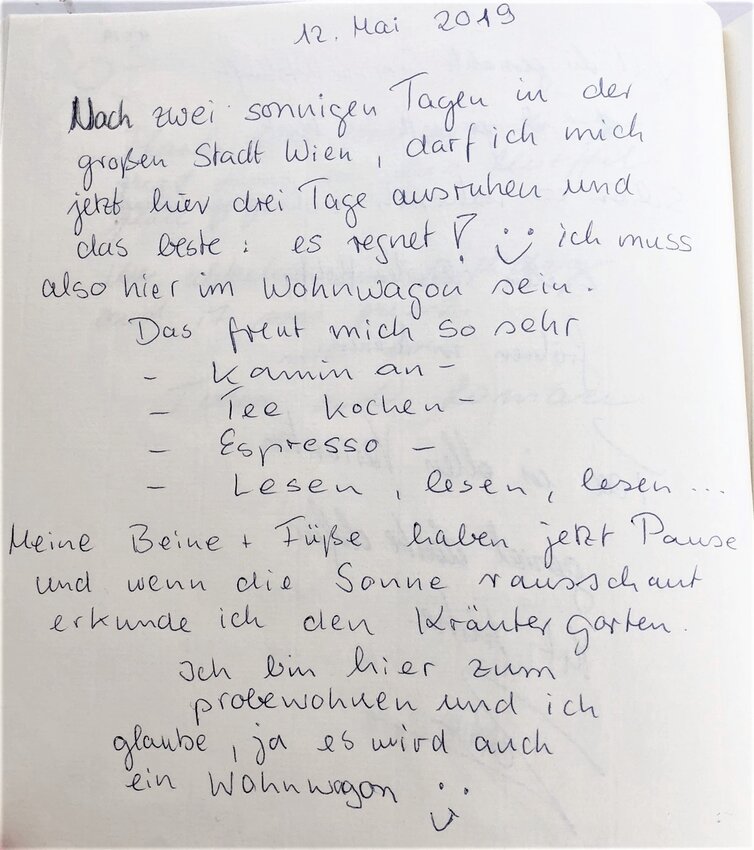 12. Mai 2019
Nach zwei sonnigen Tagen in der
großen Stadt Wien, darf ich mich
jetzt hier drei Tage ausruhen und
das beste: es regnet! ich muss
also hier im Wohnwagon sein.
Das freut mich so sehr
- Kamin an -
- Tee kochen -
- Espresso -
- Lesen, lesen, lesen...
Meine Beine + Füße haben jetzt Pause
und wenn die Sonne rausschaut
erkunde ich den Kräutergarten.
Ich bin hier zum
probewohnen und ich
glaube, ja es wird auch
ein Wohnwagon